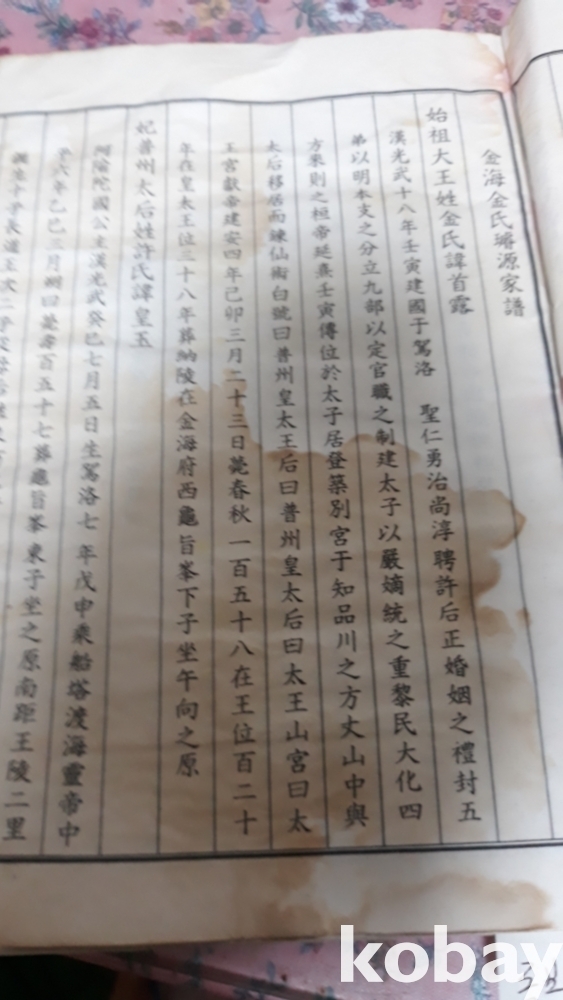 金海金氏璿源家譜
始祖大王姓金氏諱首露
漢光武十八年壬寅建國于駕洛 聖仁勇治尚淳聘許后正婚姻之禮封五
弟以明本支之分立九部以定官職之制建太子以嚴嫡統之重黎民大化四
方東則之桓帝延熹壬寅傳位於太子居登築別宮于知品川之方丈山中與
太后移居而鍊仙術自號曰普州皇太王后曰普州皇太后曰太王山宮曰太
王宮獻帝建安四年己卯三月二十三日薨春秋一百五十八在王位百二十
年在皇太王位三十八年葬納陵在金海府西龜旨峯下子坐午向之原
妃普州太后姓許氏諱皇玉
阿隃陀國公主漢光武癸巳七月五日生駕洛七年戊申乘船塔渡海靈帝中
平六年己巳三月朔日薨壽百五十七葬龜旨峯東子坐之原南距王陵二里
kobay